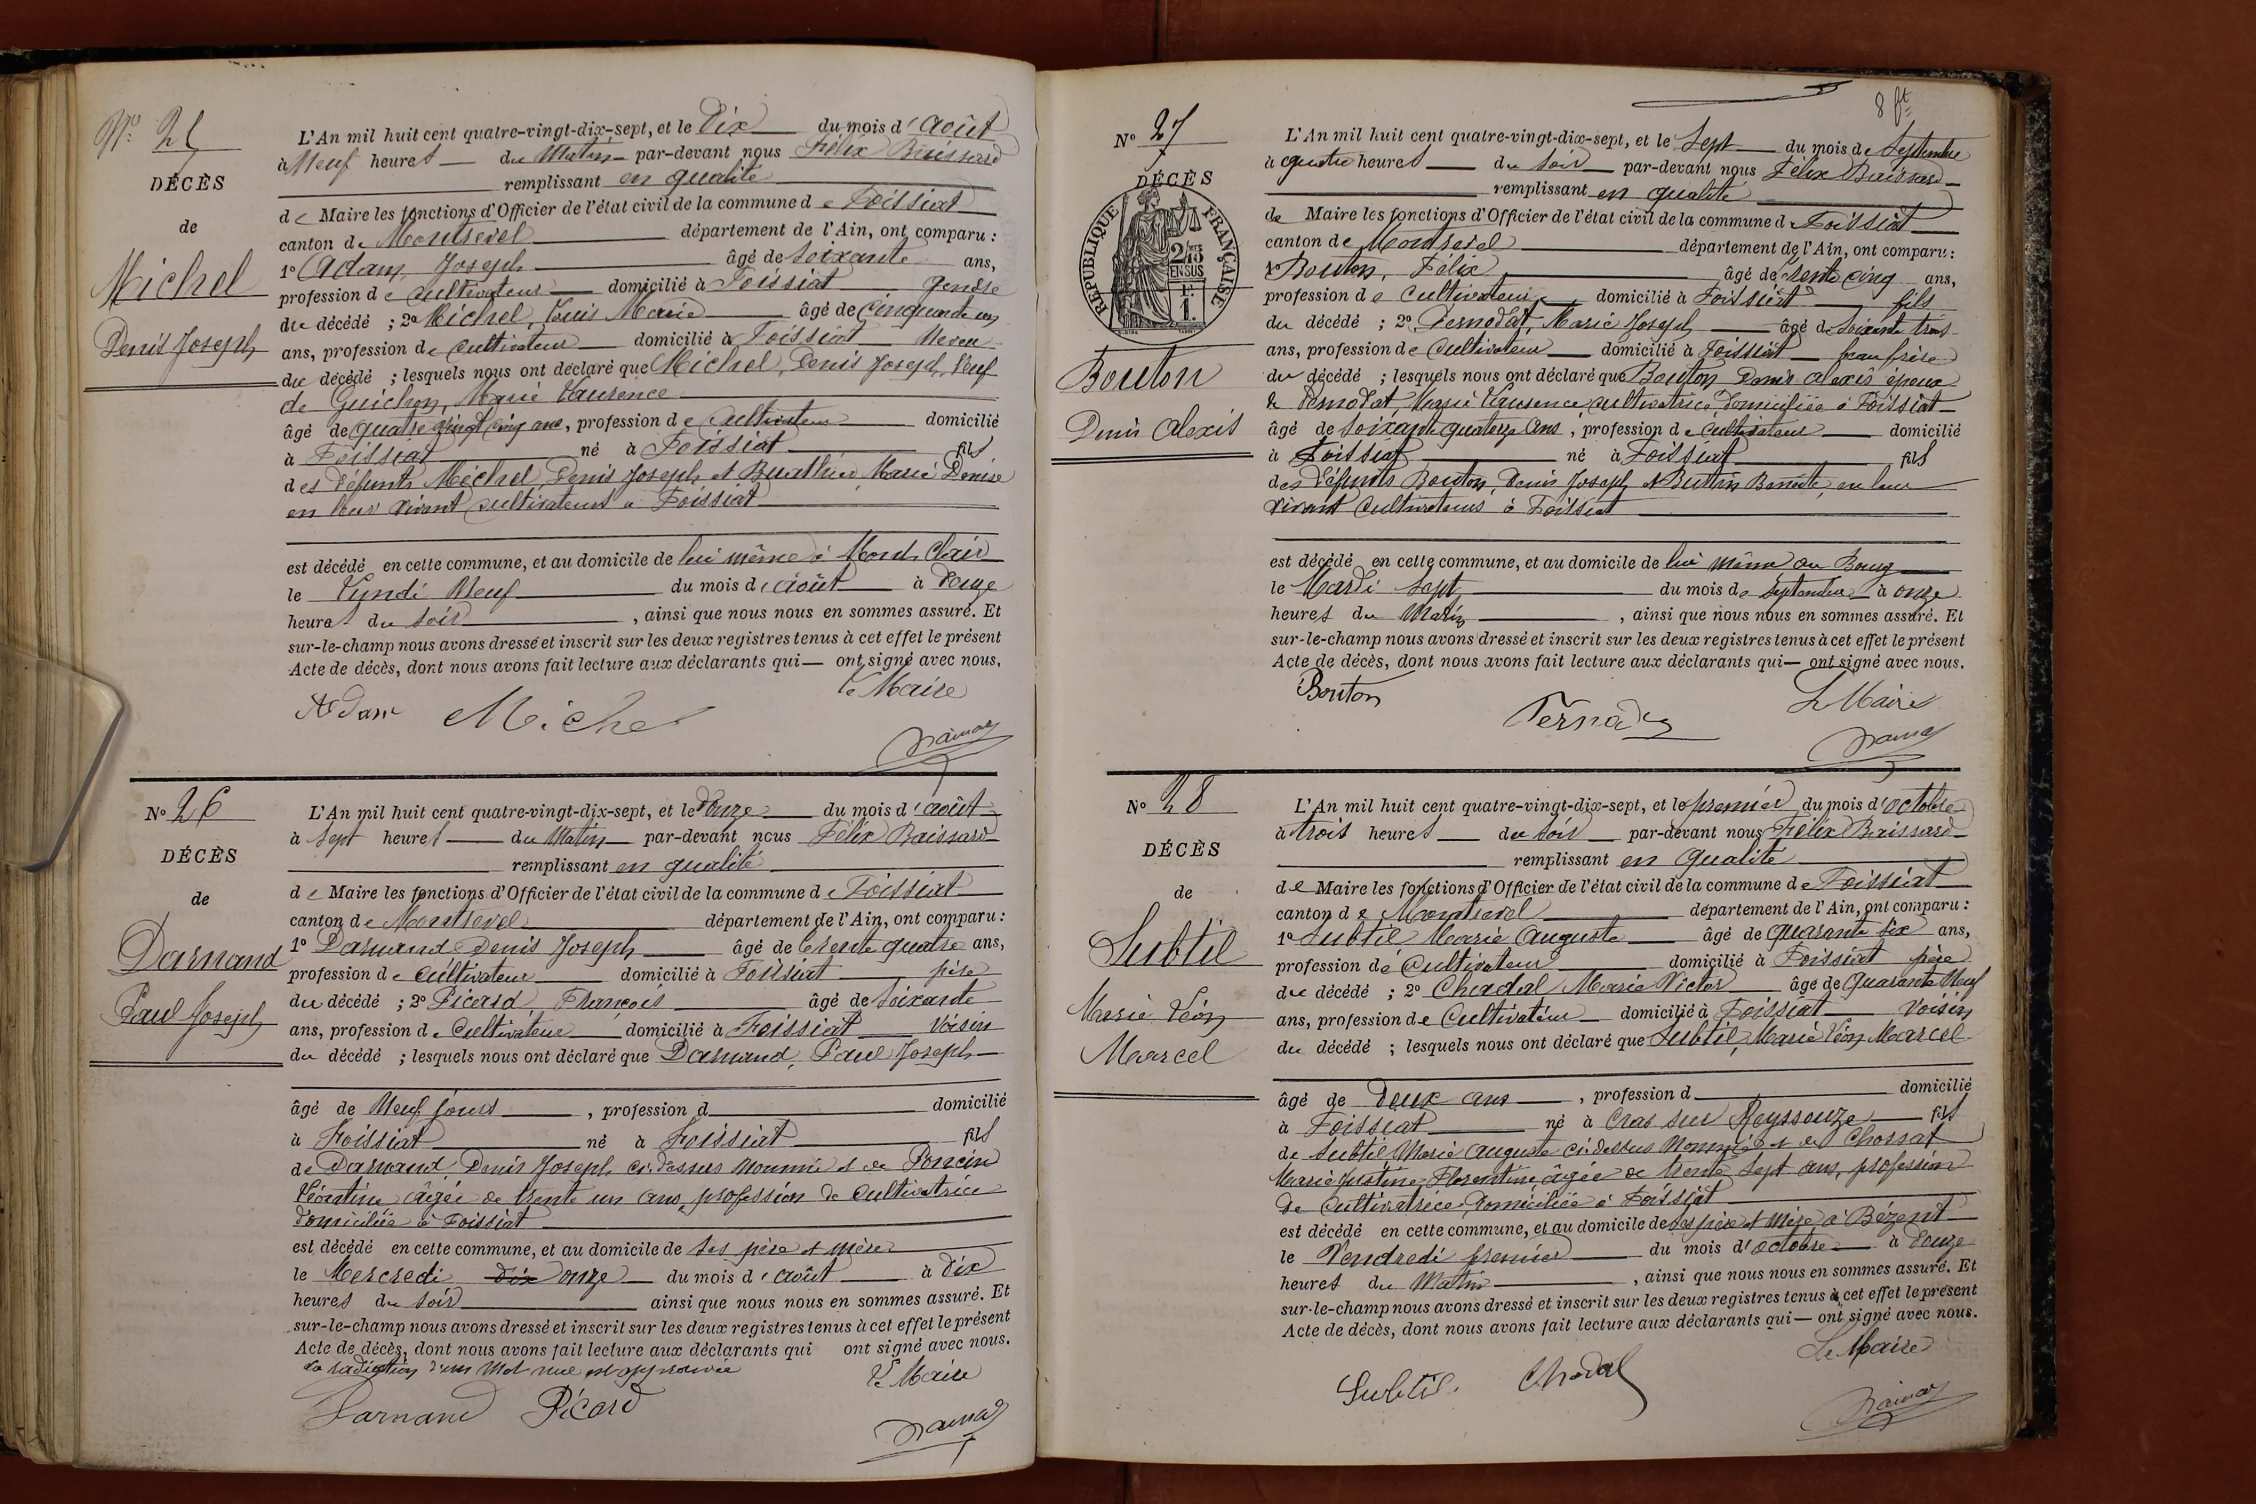 Nº 25
DÉCÈS
de
Michel
Denis Joseph
L'An mil huit cent quatre-vingt-dix-sept, et le Dix du mois d'août
à Neuf heures du Matin par-devant nous Félix
remplissant en qualité
de Maire les fonctions d'Officier de l'état civil de la commune de Foissiat
canton de Montrevel département de l'Ain, ont comparu :
1º Adam, Joseph âgé de soixante ans,
profession de cultivateur domicilié à Foissiat gendre
du décédé ; 2º Michel, Louis Marie âgé de cinquante un
ans, profession de cultivateur domicilié à Foissiat Neveu
du décédé ; lesquels nous ont déclaré que Michel, Denis Joseph, Veuf
de Guichon, Marie Laurence
âgé de quatre vingt cinq ans, profession de cultivateur domicilié
à Foissiat né à Foissiat fils
des défunts Michel, Denis Joseph et Buathier, Marie Denise
en leur vivant cultivateurs à Foissiat
est décédé en cette commune, et au domicile de lui même à Mont Clair
le Lundi Neuf du mois d'août à Onze
heures du soir , ainsi que nous nous en sommes assuré. Et
sur-le-champ nous avons dressé et inscrit sur les deux registres tenus à cet effet le présent
Acte de décès, dont nous avons fait lecture aux déclarants qui ont signé avec nous.
Le Maire
Adam Michel
Nº 26
DÉCÈS
de
Darnand
Paul Joseph
L'An mil huit cent quatre-vingt-dix-sept, et le douze du mois d'août
à sept heures du Matin par-devant nous Félix
remplissant en qualité
de Maire les fonctions d'Officier de l'état civil de la commune de Foissiat
canton de Montrevel département de l'Ain, ont comparu :
1º Darnand Denis Joseph âgé de trente quatre ans,
profession de cultivateur domicilié à Foissiat père
du décédé ; 2º Picard, François âgé de soixante
ans, profession de Cultivateur domicilié à Foissiat Voisin
du décédé ; lesquels nous ont déclaré que Darnand, Paul Joseph
âgé de Neuf jours , profession d domicilié
à Foissiat né à Foissiat fils
de Darnand Denis Joseph ci-dessus nommé et de Poncin
Léontine âgée de trente un ans, profession de cultivatrice
domiciliée à Foissiat
est décédé en cette commune, et au domicile de ses père et mère
le Mercredi dix onze du mois d'août à Dix
heures du soir ainsi que nous nous en sommes assuré. Et
sur-le-champ nous avons dressé et inscrit sur les deux registres tenus à cet effet le présent
Acte de décès, dont nous avons fait lecture aux déclarants qui ont signé avec nous.
La radiation d'un mot nul est approuvée
Le Maire
Darnand Picard
8 ft
Nº 27
DÉCÈS
RÉPUBLIQUE FRANÇAISE
2/10 EN SUS
1 F.
Bouton
Denis Alexis
L'An mil huit cent quatre-vingt-dix-sept, et le Sept du mois de Septembre
à quatre heures du soir par-devant nous Félix
remplissant en qualité
de Maire les fonctions d'Officier de l'état civil de la commune de Foissiat
canton de Montrevel département de l'Ain, ont comparu :
1º Bouton, Félix âgé de trente cinq ans,
profession de cultivateur domicilié à Foissiat fils
du décédé ; 2º Pernodat, Marie Joseph âgé de soixante trois
ans, profession de Cultivateur domicilié à Foissiat beau frère
du décédé ; lesquels nous ont déclaré que Bouton Denis Alexis époux
de Pernodat, Marie Laurence cultivatrice domiciliée à Foissiat
âgé de soixante quatorze ans , profession de cultivateur domicilié
à Foissiat né à Foissiat fils
des défunts Bouton, Denis Joseph et Buttin Benoite, en leur
vivant Cultivateurs à Foissiat
est décédé en cette commune, et au domicile de lui même au Bourg
le Mardi Sept du mois de Septembre à onze
heures du Matin , ainsi que nous nous en sommes assuré. Et
sur-le-champ nous avons dressé et inscrit sur les deux registres tenus à cet effet le présent
Acte de décès, dont nous avons fait lecture aux déclarants qui ont signé avec nous.
Bouton Le Maire
Nº 28
DÉCÈS
de
Subtil
Marie Léon
Marcel
L'An mil huit cent quatre-vingt-dix-sept, et le premier du mois d'octobre
à trois heures du soir par-devant nous Félix
remplissant en qualité
de Maire les fonctions d'Officier de l'état civil de la commune de Foissiat
canton de Montrevel département de l'Ain, ont comparu :
1º Subtil Marie Auguste âgé de quarante six ans,
profession de Cultivateur domicilié à Foissiat père
du décédé ; 2º Chadal Marie Victor âgé de Quarante Neuf
ans, profession de Cultivateur domicilié à Foissiat Voisin
du décédé ; lesquels nous ont déclaré que Subtil, Marie Léon Marcel
âgé de Deux ans , profession d domicilié
à Foissiat né à Cras sur Reyssouze fils
de Subtil Marie Auguste ci-dessus Nommé et de Chossat
Marie Justine Florentine âgée de trente sept ans, profession
de cultivatrice, domiciliée à Foissiat
est décédé en cette commune, et au domicile de ses père et mère à Bézent
le Vendredi premier du mois d'octobre à Onze
heures du Matin , ainsi que nous nous en sommes assuré. Et
sur-le-champ nous avons dressé et inscrit sur les deux registres tenus à cet effet le présent
Acte de décès, dont nous avons fait lecture aux déclarants qui ont signé avec nous.
Le Maire
Subtil. Chadal